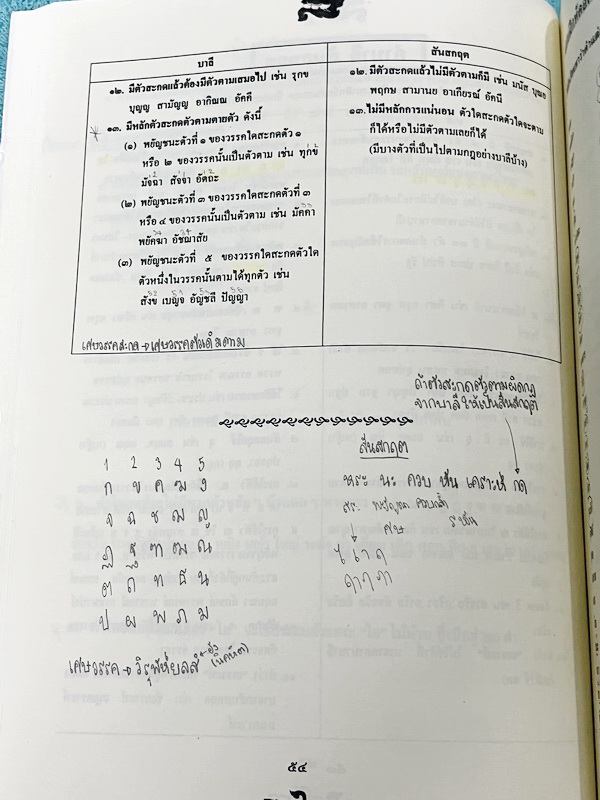 บาลี
สันสกฤต
๑๒. มีตัวสะกดแล้วต้องมีตัวตามเสมอไป เช่น รุกข
บุญญ สามัญญ อากิณณ อัคคี
๑๓. มีหลักตัวสะกดตัวตามตายตัว ดังนี้
(๑) พยัญชนะตัวที่ ๑ ของวรรคใดสะกดตัว ๑
หรือ ๒ ของวรรคนั้นเป็นตัวตาม เช่น ทุกข์
มัจฉา สัจจา อัตถะ
(๒) พยัญชนะตัวที่ ๓ ของวรรคใดสะกดตัวที่ ๓
หรือ ๔ ของวรรคนั้นเป็นตัวตาม เช่น มัคคา
พยัคฆา อัชฌาสัย
(๓) พยัญชนะตัวที่ ๕ ของวรรคใดสะกดตัวใด
ตัวหนึ่งในวรรคนั้นตามได้ทุกตัว เช่น
สังข์ เบญจ อัญชลี ปัญญา
เศษวรรคสะกด → เศษวรรคตัวเดิมตาม
๑๒. มีตัวสะกดแล้วไม่มีตัวตามก็มี เช่น มนัส บุณย
พฤกษ สามานย อาเกียรณ์ อัคนี
๑๓. ไม่มีหลักการแน่นอน ตัวใดสะกดตัวใดจะตาม
ก็ได้หรือไม่มีตัวตามเลยก็ได้
(มีบางตัวที่เป็นไปตามกฎอย่างบาลีบ้าง)
ถ้าตัวสะกดตัวตามผิดกฎ
จากบาลีให้เป็นสันสกฤต
1 2 3 4 5
ก ข ค ฆ ง
จ ฉ ช ฌ ญ
ฏ ฐ ฑ ฒ ณ
ต ถ ท ธ น
ป ผ พ ภ ม
เศษวรรค → วิรุฬห์ยลส์ + อัง
(นิคหิต)
สันสกฤต
หระ นะ ควบ หัน เคราะห์ กัด
ศษ
ไ เา ฤ
ฤๅ ฦ ฦๅ
๕๔